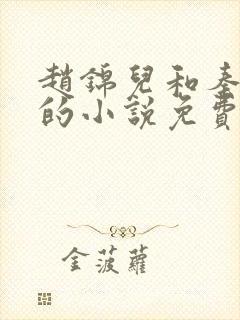 趙錦兒和秦
的小說免費
金菠蘿